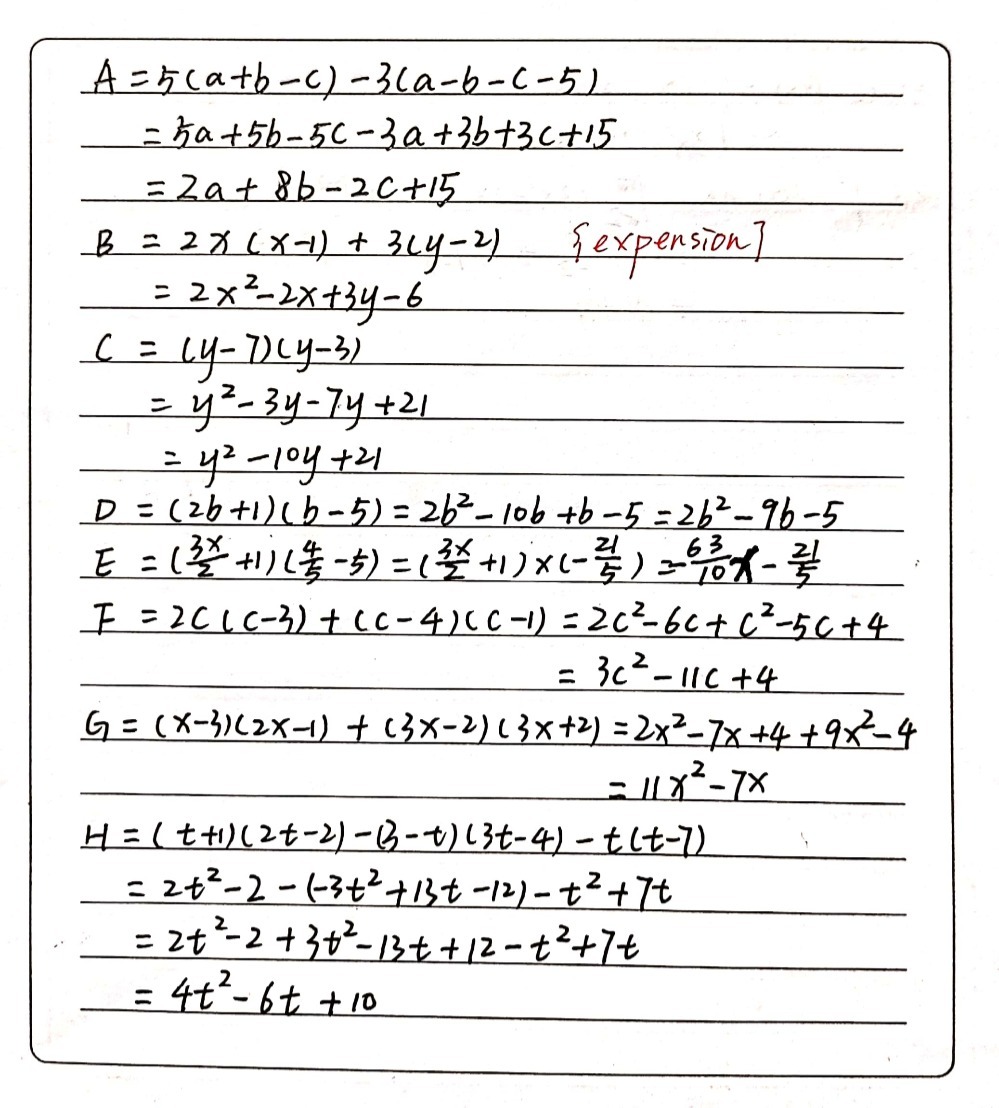 A = 5(a+b-c) - 3(a-b-c-5)
= 5a+5b-5c-3a+3b+3c+15
= 2a+8b-2c+15
B = 2x(x-1) + 3(y-2) {expension]
= 2x²-2x+3y-6
C = (y-7)(y-3)
= y²-3y-7y+21
= y²-10y+21
D = (2b+1)(b-5) = 2b²-10b+b-5 = 2b²-9b-5
E = (3x/2 +1)(4/5 -5) = (3x/2 +1)×(-21/5) = -63/10 x - 21/5
F = 2c(c-3) + (c-4)(c-1) = 2c²-6c+c²-5c+4
= 3c²-11c+4
G = (x-3)(2x-1) + (3x-2)(3x+2) = 2x²-7x+4+9x²-4
= 11x²-7x
H = (t+1)(2t-2)-(3-t)(3t-4)-t(t-7)
= 2t²-2-(-3t²+13t-12)-t²+7t
= 2t²-2+3t²-13t+12-t²+7t
= 4t²-6t+10